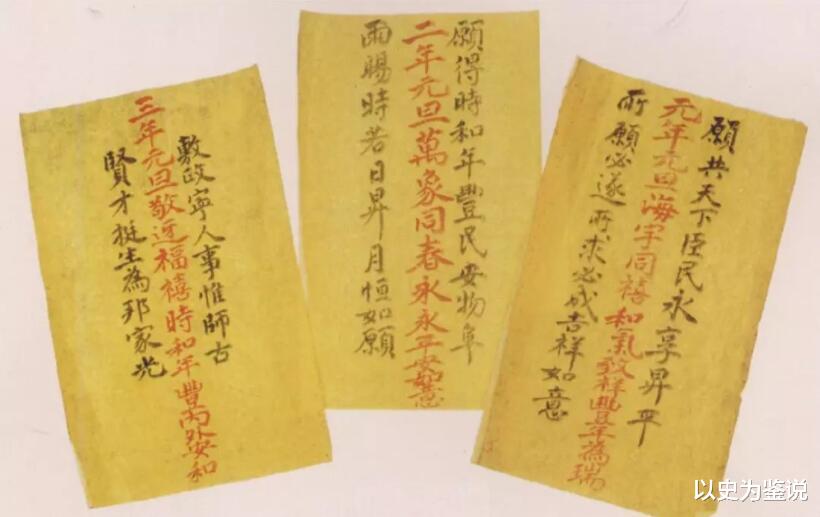 願共天下臣民永享昇平
元年元旦海宇同禧和氣致祥豐年為瑞
所願必遂所求必成吉祥如意
願得時和年豐民安物阜
二年元旦萬象同春永永平安如意
雨暘時若日昇月恒如願
敷政寧人事惟師古
三年元旦敬迓福禧時和年豐內外安和
賢才挺生為邦家光
以史为鉴说